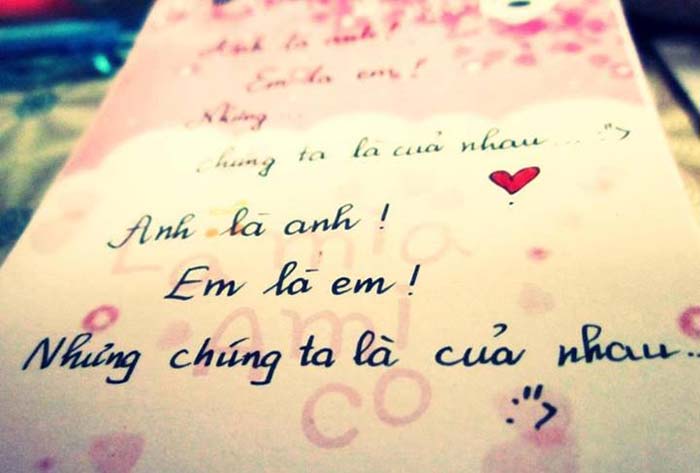 Anh là anh!
Em là em!
Nhưng
chúng ta là của nhau... :">
Anh là anh!
Em là em!
Nhưng chúng ta là của nhau...
:">
La mia
Ami
co